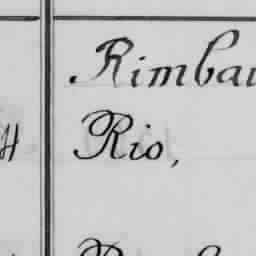 Rimbau
Rio,